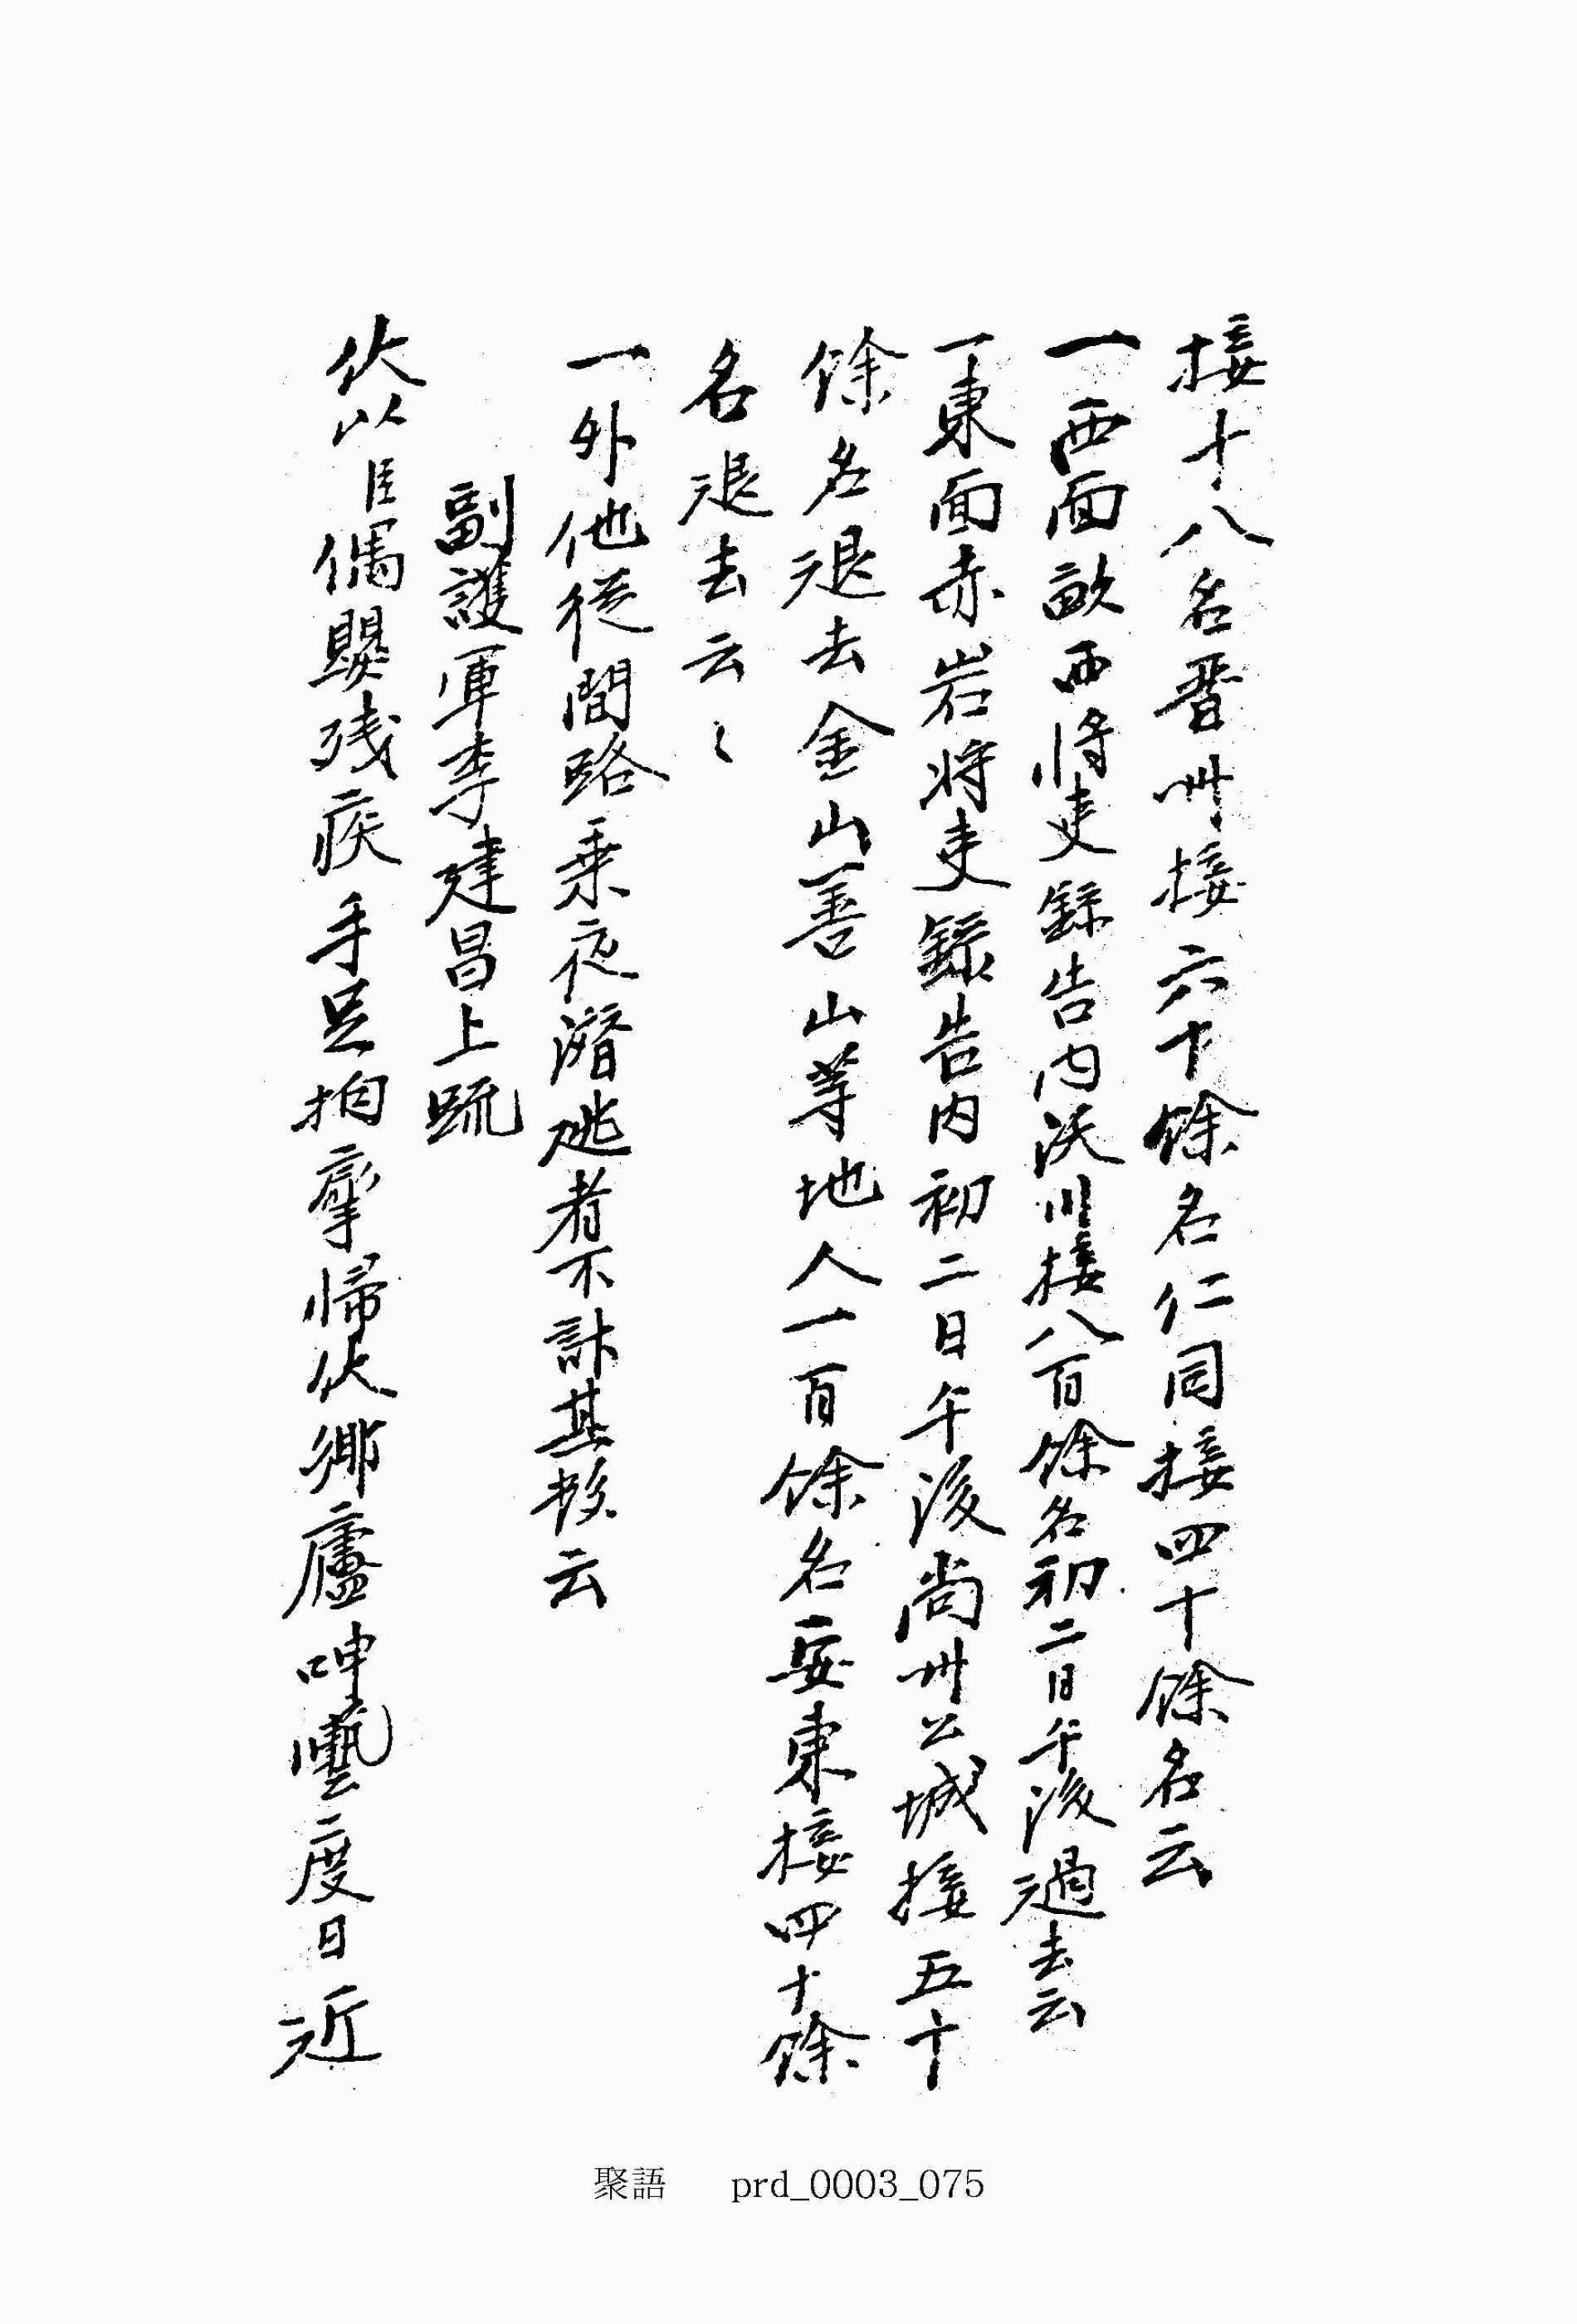 接十八名晋州接六十餘名仁同接四十餘名云
一西面畝西將吏錄告內沃川接八百餘名初二日午後過去云
一東面赤岩將吏錄告內初二日午後尙州公城接五十
餘名退去金山善山等地人一百餘名安東接四十餘
名退去云〻
一外他從間路乘夜潛逃者不計其數云
副護軍李建昌上疏
伏以臣偶嬰殘疾手足拘攣歸伏鄕廬呻囈度日近
聚語 prd_0003_075